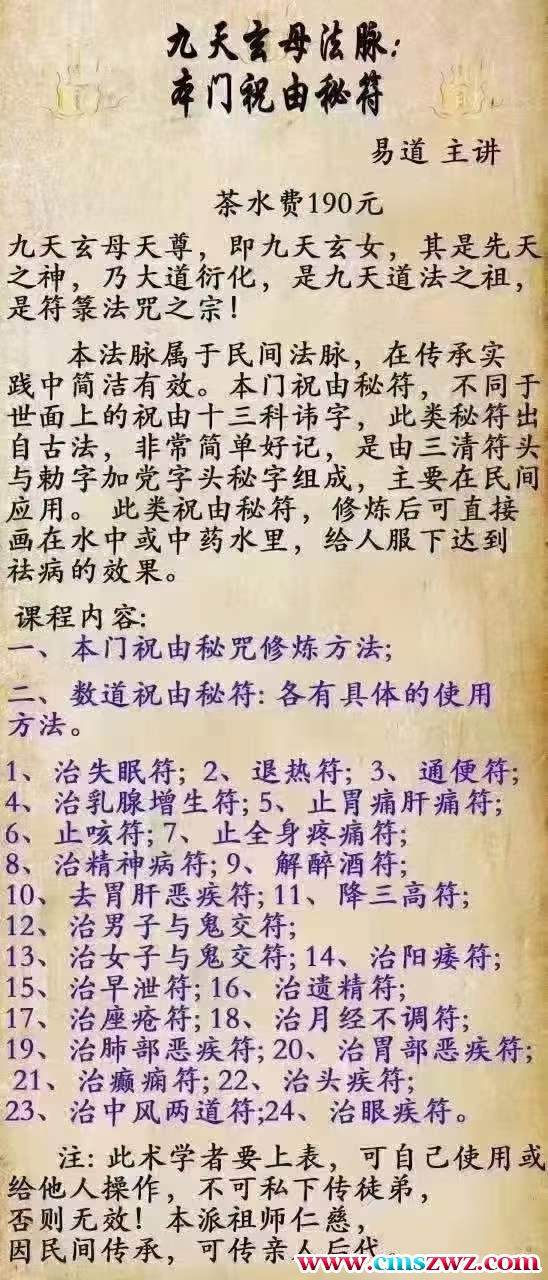 九天玄母法脉:
本门祝由秘符
易道 主讲
茶水费190元
九天玄母天尊，即九天玄女，其是先天
之神，乃大道衍化，是九天道法之祖，
是符箓法咒之宗！
本法脉属于民间法脉，在传承实
践中简洁有效。本门祝由秘符，不同于
世面上的祝由十三科讳字，此类秘符出
自古法，非常简单好记，是由三清符头
与勅字加党字头秘字组成，主要在民间
应用。 此类祝由秘符，修炼后可直接
画在水中或中药水里，给人服下达到
祛病的效果。
课程内容:
一、本门祝由秘咒修炼方法;
二、数道祝由秘符: 各有具体的使用
方法。
1、治失眠符; 2、退热符; 3、通便符;
4、治乳腺增生符; 5、止胃痛肝痛符;
6、止咳符; 7、止全身疼痛符;
8、治精神病符; 9、解醉酒符;
10、去胃肝恶疾符; 11、降三高符;
12、治男子与鬼交符;
13、治女子与鬼交符; 14、治阳痿符;
15、治早泄符; 16、治遗精符;
17、治座疮符; 18、治月经不调符;
19、治肺部恶疾符; 20、治胃部恶疾符;
21、治癫痫符; 22、治头疾符;
23、治中风两道符;24、治眼疾符。
注: 此术学者要上表，可自己使用或
给他人操作，不可私下传徒弟，
否则无效！本派祖师仁慈，
因民间传承，可传亲人后代。
www.cmszwz.com